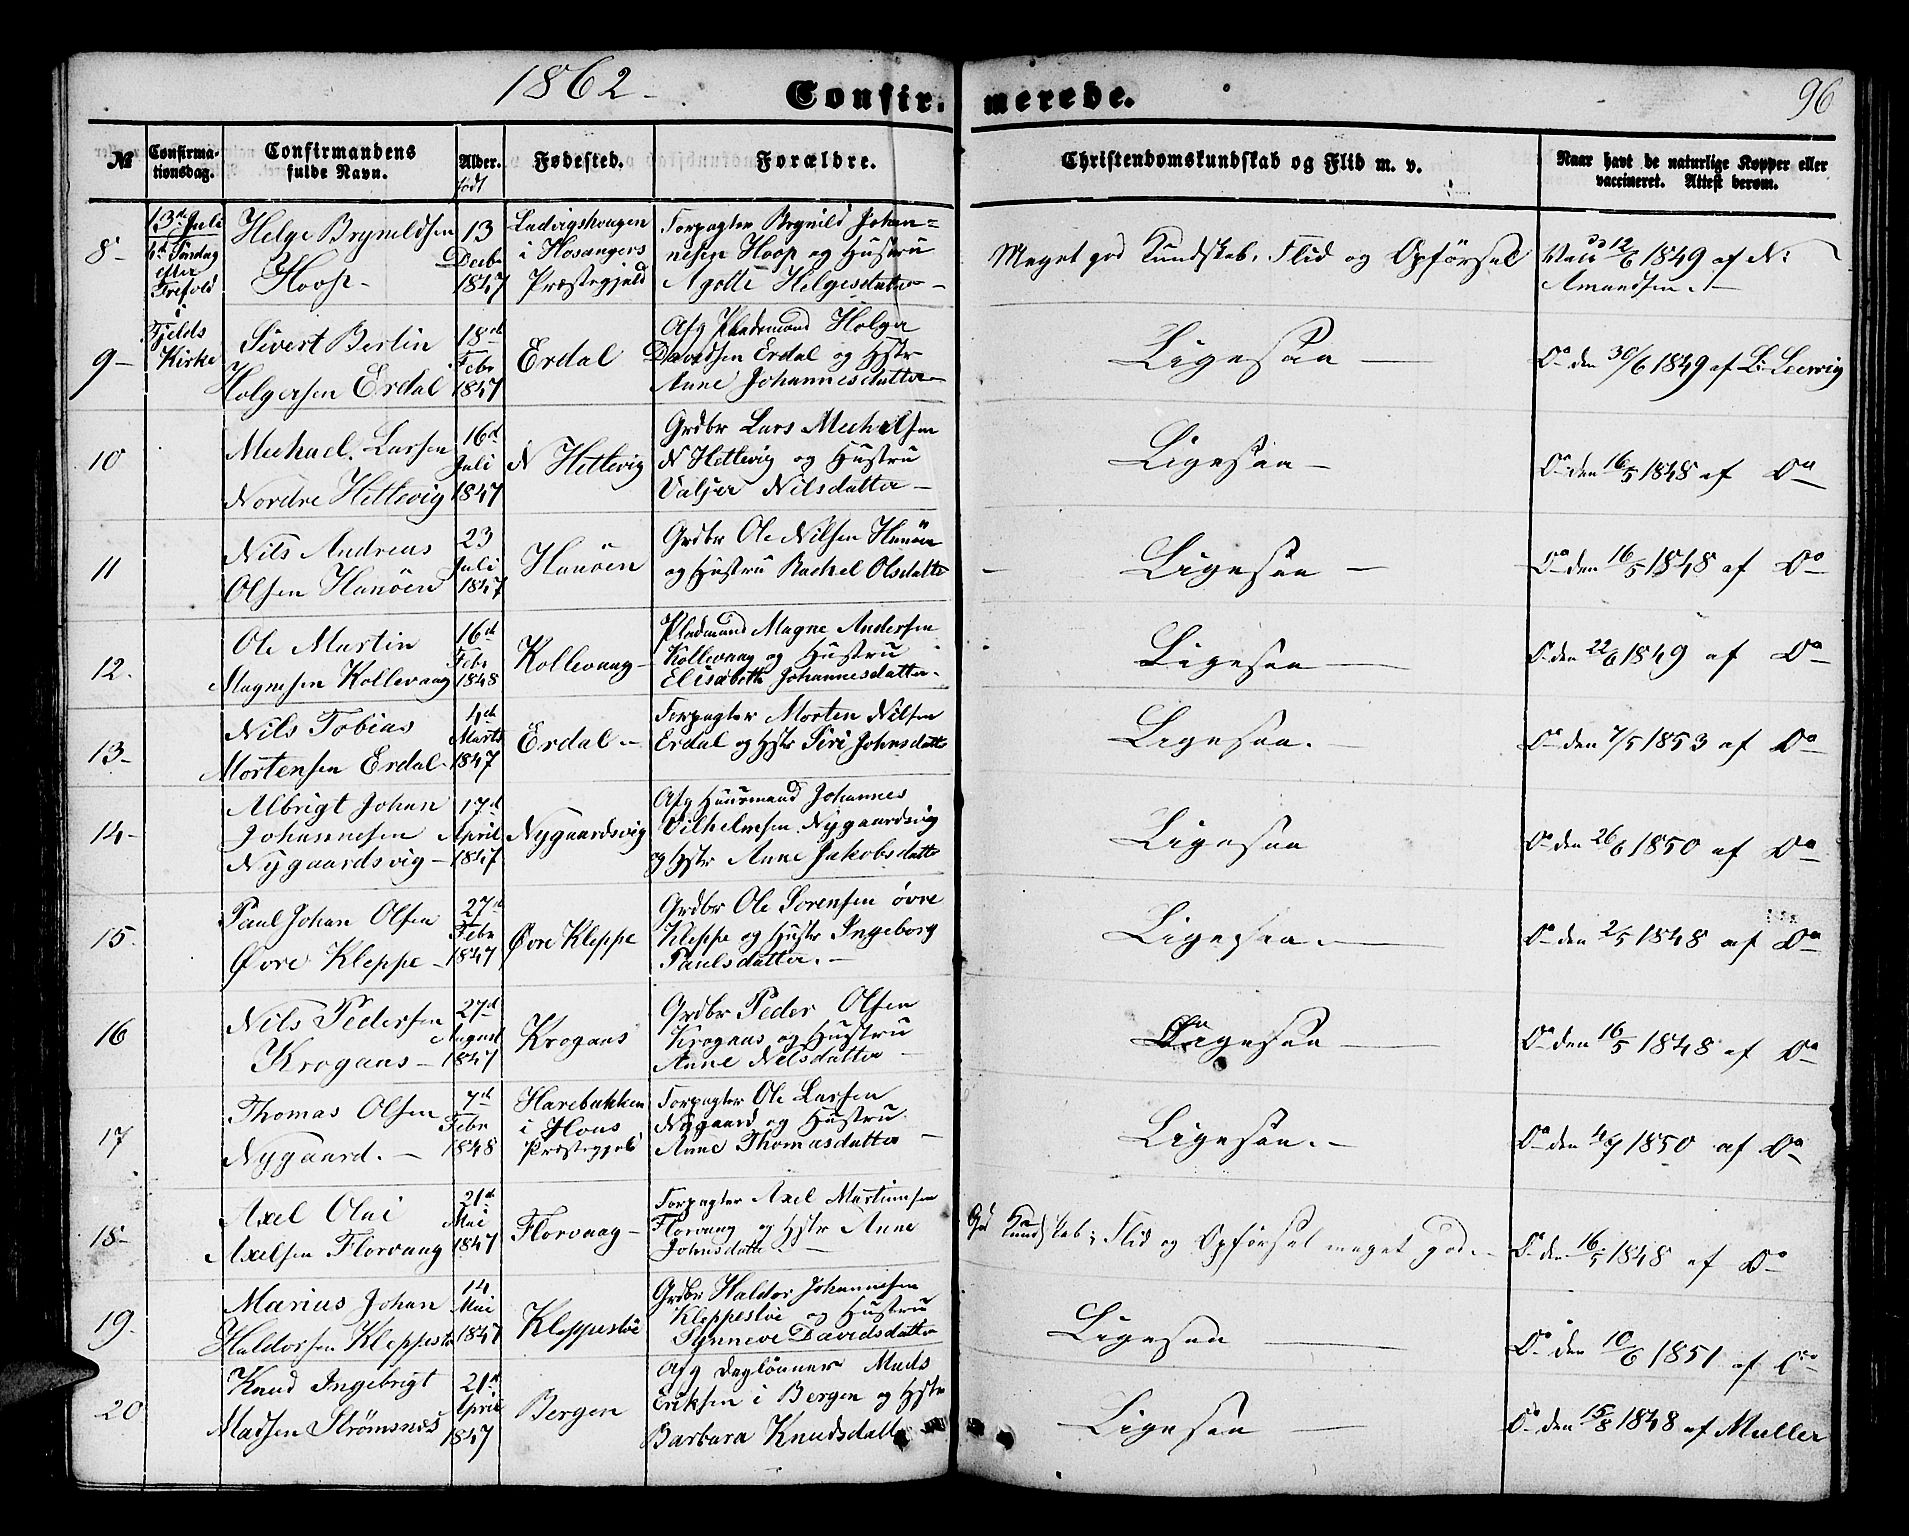 1862 - Confir- merede. 96
№ Confirma- tionsdag. Confirmandens fulde Navn. Alder. født Fødested. Forældre. Christendomskundskab og Flid m. v. Naar havt de naturlige Kopper eller vaccineret. Attest derom.
8- 13de Juli
6te Søndag
efter
Trefold
i
Fjelds
Kirke
Helge Bryneldsen
Hoop-
13
Decbr
1847
Ludvigshougen
i Hosangers
Præstegjeld
Forpagter Brynild Johan=
nesen Hoop og Hustru
Agotte Helgesdatter-
Meget god Kundskab, Flid og Opførsel
Vacc 12/6 1849 af N:
Amundsen.-
9- Sivert Bertin
Holgersen Erdal
18de
Febr
1847
Erdal
Afg Pladsmand Holger
Davidsen Erdal og Hstr
Anne Johannesdatter-
Ligesaa-
Do den 30/6 1849 af L: Leewig
10 Michael. Larsen
Nordre Hettevig
16d
Juli
1847
N Hettevig
Grdbr Lars Michelsen
N Hettevig og Hustru
Valjer Nilsdatter-
Ligesaa-
Do den 16/5 1848 af Do
11 Nils Andreas
Olsen Hanöen
23
Juli
1847
Hanöen
Grdbr Ole Nilsen Hanöen
og Hustru Rachel Olsdatter
- Ligesaa -
Do den 16/5 1848 af Do
12. Ole Martin
Magnesen Kollevaag
16d
Febr
1848
Kollevaag-
Pladsmand Magne Andersen
Kollevaag og Hustru
Elisabeth Johannesdatter.
Ligesaa-
Do den 22/6 1849 af Do
13- Nils Tobias
Mortensen Erdal-
4de
Marts
1847
Erdal-
Forpagter Morten Nilsen
Erdal og Hstr Siri Johnsdatter
Ligesaa.-
Do den 7/5 1853 af Do
14- Albrigt Johan
Johannesen
Nygaardsvig-
17d
April
1847
Nygaardsvig
Afg Huusmand Johannes
Vilhelmsen Nygaardsvig
og Hstr Anne Jakobsdatter
Ligesaa
Do den 26/6 1850 af Do
15. Paul Johan Olsen
Øvre Kleppe-
27d
Febr
1847
Øvre Kleppe
Grdbr Ole Sorensen øvre
Kleppe og Hustr Ingeborg
Paulsdatter.-
Ligesaa.-
Do den 2/5 1848 af Do
16 Nils Pedersen
Krogaas-
27d
August
1847
Krogaas
Grdbr Peder Olsen
Krogaas og Hustru
Anne Nilsdatter-
Ligesaa-
Do den 16/5 1848 af Do
17 Thomas Olsen
Nygaard.-
7d
Febr
1848
Harebakken
i Hous
Præstegjeld
Forpagter Ole Larsen
Nygaard og Hustru
Anne Thomasdatter-
Ligesaa.-
Do den 4/7 1850 af Do
18- Axel Olai
Axelsen Florvaag
21d
Mai
1847
Florvaag-
Forpagter Axel Martinusen
Florvaag og Hstr Anne
Johnsdatter.-
God Kundskab; Flid og Opførsel meget god.-
Do den 16/5 1848 af Do
19. Marius Johan
Haldorsen Kleppestø
14
Mai
1847
Kleppestöe
Grdbr Haldor Johannesen
Kleppestöe og Hustru
Synneve Davidsdatter
Ligesaa-
Do den 10/6 1851 af Do
20 Knud Ingebrigt
Madsen Strømsnes
21d
April
1847
Bergen
Afg Daglönner Mads
Eriksen i Bergen og Hstr
Barbara Knudsdatter
Ligesaa-
Do den 15/8 1848 af Muller